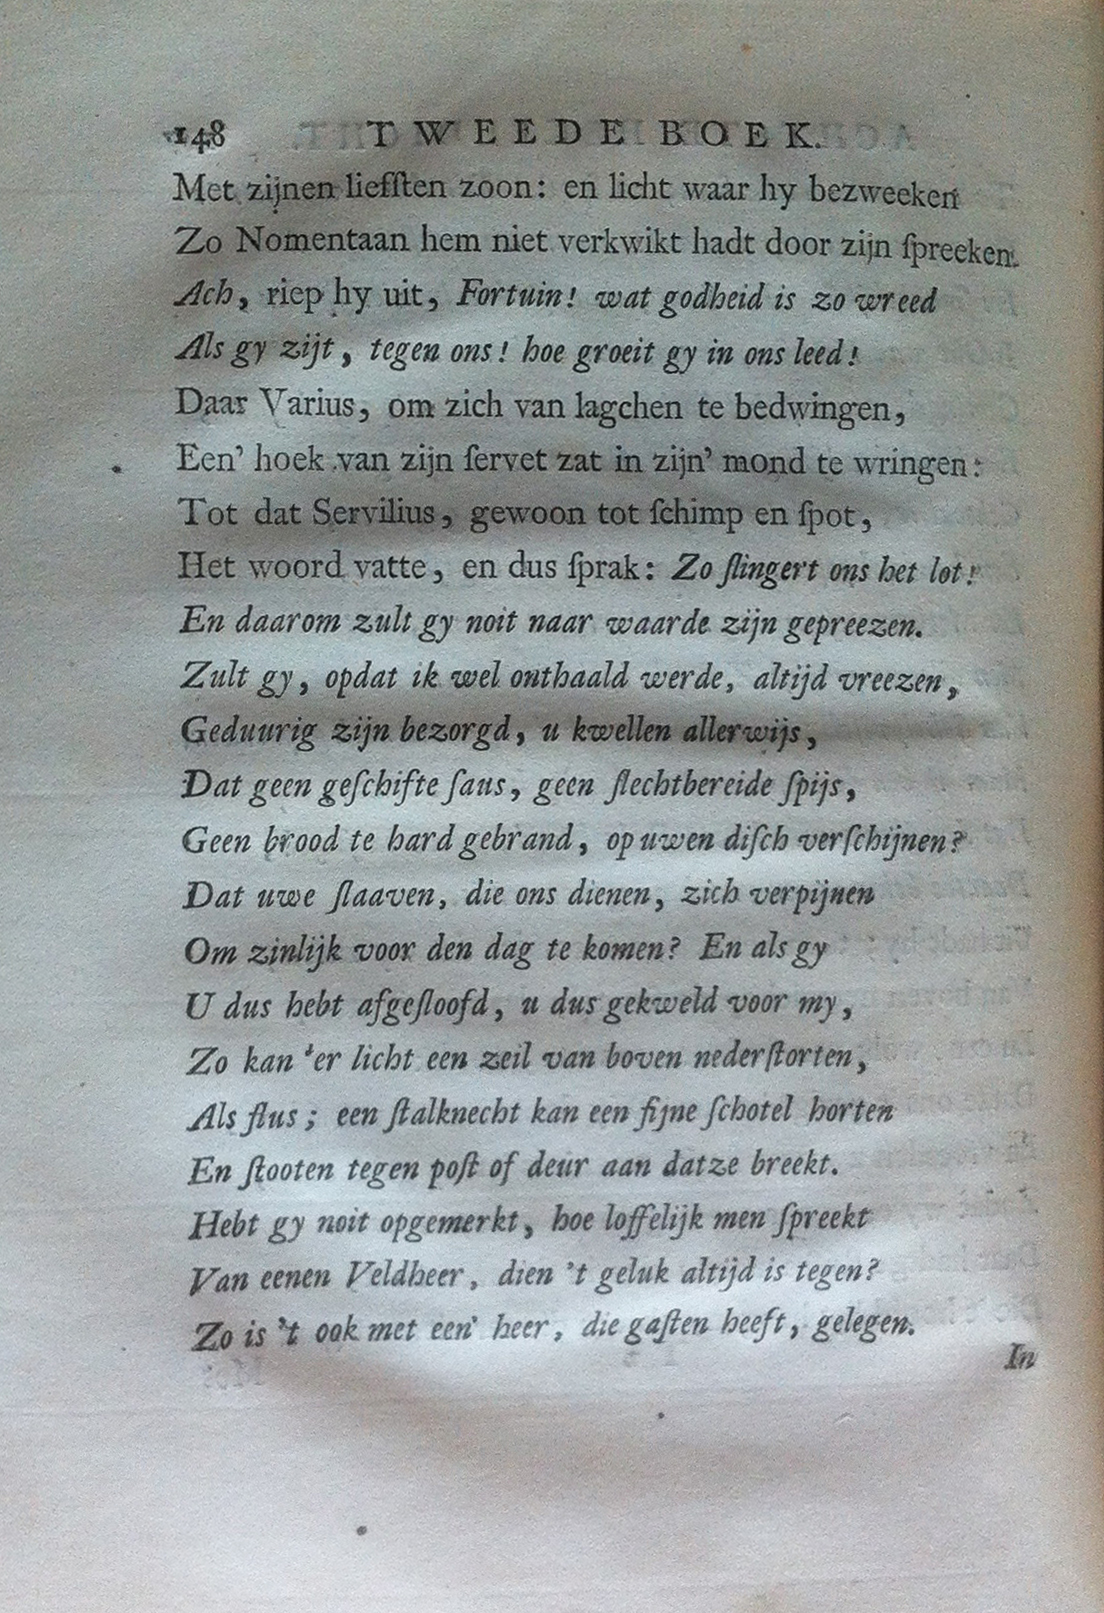 148 TWEEDE BOEK.
Met zijnen liefſten zoon: en licht waar hy bezweeken
Zo Nomentaan hem niet verkwikt hadt door zijn ſpreeken.
Ach, riep hy uit, Fortuin! wat godheid is zo wreed
Als gy zijt, tegen ons! hoe groeit gy in ons leed!
Daar Varius, om zich van lagchen te bedwingen,
Een’ hoek van zijn ſervet zat in zijn’ mond te wringen:
Tot dat Servilius, gewoon tot ſchimp en ſpot,
Het woord vatte, en dus ſprak: Zo ſlingert ons het lot!
En daarom zult gy noit naar waarde zijn gepreezen.
Zult gy, opdat ik wel onthaald werde, altijd vreezen,
Geduurig zijn bezorgd, u kwellen allerwijs,
Dat geen geſchifte ſaus, geen ſlechtbereide ſpijs,
Geen brood te hard gebrand, op uwen diſch verſchijnen?
Dat uwe ſlaaven, die ons dienen, zich verpijnen
Om zinlijk voor den dag te komen? En als gy
U dus hebt afgeſloofd, u dus gekweld voor my,
Zo kan ’er licht een zeil van boven nederſtorten,
Als flus; een ſtalknecht kan een fijne ſchotel horten
En ſtooten tegen poſt of deur aan datze breekt.
Hebt gy noit opgemerkt, hoe loffelijk men ſpreekt
Van eenen Veldheer, dien ’t geluk altijd is tegen?
Zo is ’t ook met een’ heer, die gaſten heeft, gelegen.
In